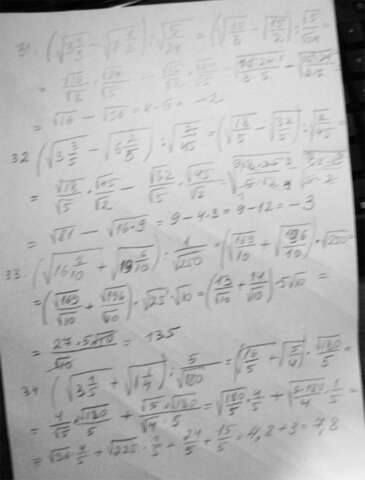 31. (√3 1/5 − √7 1/2) : √5/24 = (√16/5 − √15/2) : √5/24
= √16/√5 · √24/√5 −
= √16 − √36 = 4 − 6 = −2
32 (√3 3/5 − √6 2/5) : √2/45 = (√18/5 − √32/5) : √2/45 =
= √18/√5 · √45/√2 − √32/√5 · √45/√2 =
= √81 − √16·9 = 9 − 4·3 = 9 − 12 = −3
33. (√16 9/10 + √19 6/10) : 1/√250 = (√169/10 + √196/10) · √250 =
= (√169/√10 + √196/√10) · √25 · √10 = (13/√10 + 14/√10) · 5√10 =
= 27 · 5√10/√10 = 135
34 (√3 1/5 + √1 1/4) : 5/√180 = (√16/5 + √5/4) · √180/5 =
= 4/√5 · √180/5 + √5/√4 · √180/5 = √180/5 · 4/5 + √5·180/4 · 1/5 =
= √36 · 4/5 + √225 · 1/5 = 24/5 + 15/5 = 4,8 + 3 = 7,8